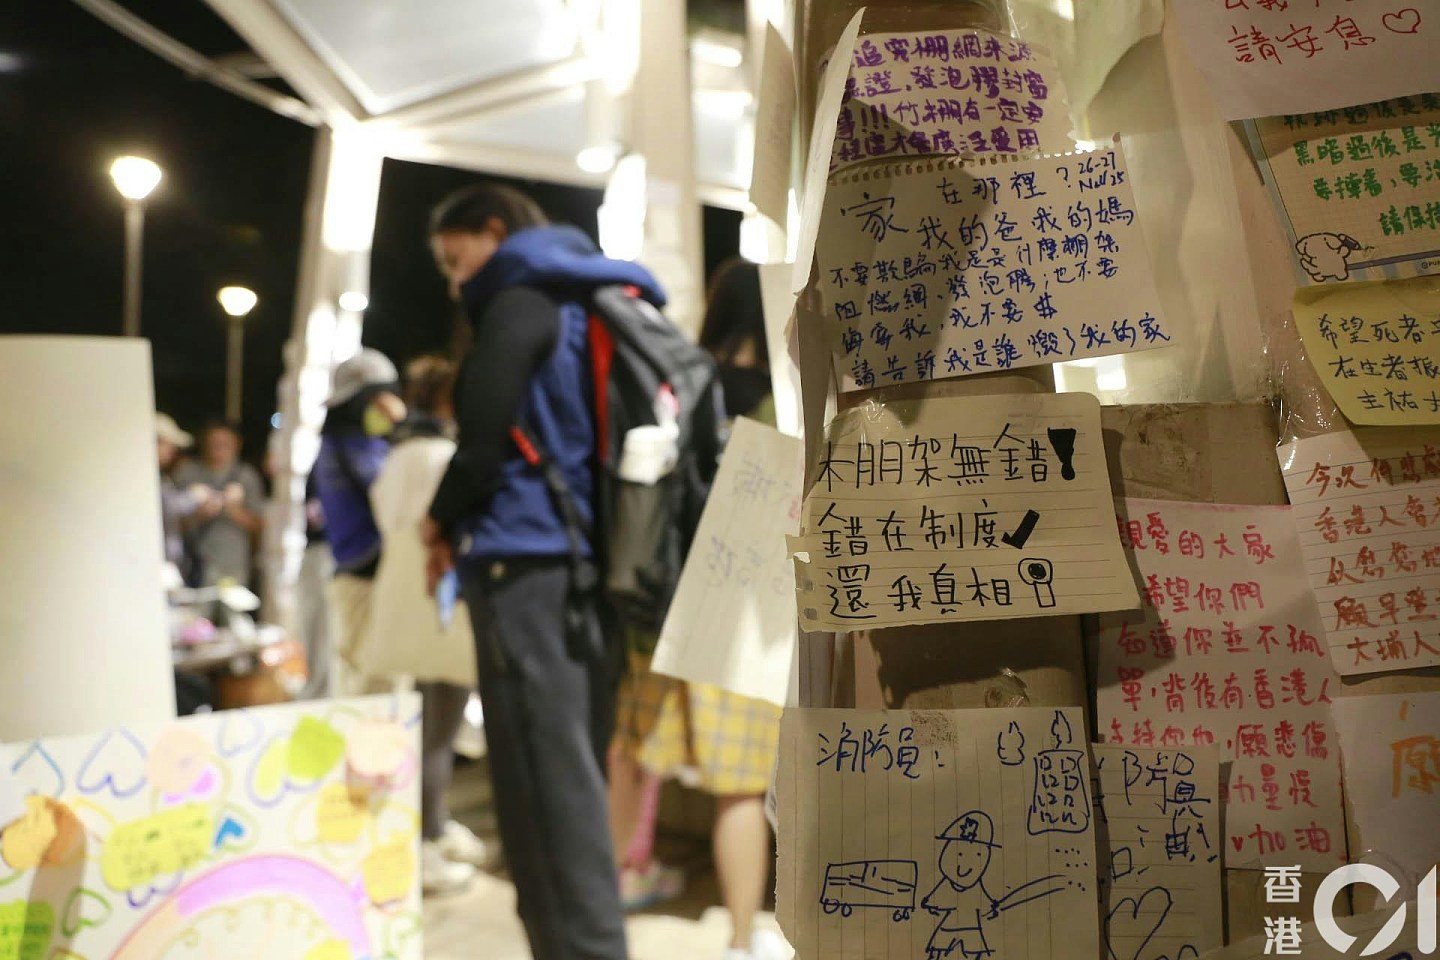 追究棚網來源
證，發泡膠封窗
!!!竹棚有一定安
家在那裡？26-27 Nov/25
我的爸我的媽
不要欺騙我是是什麼棚架
阻燃網、發泡膠；也不要
侮害我，我不要$
請告訴我是誰燬了我的家
棚架無錯！
錯在制度✓
還我真相
消防員！
請安息♡
黑暗過後是光
要撐著，要活
請保持
希望死者
在生者振
主祐大
今次
香港人會
願早登
大埔人
親愛的大家
希望你們
知道你並不孤
單，背後有香港人
支持你地，願悲傷
力量慢
♥加油
願
香港01